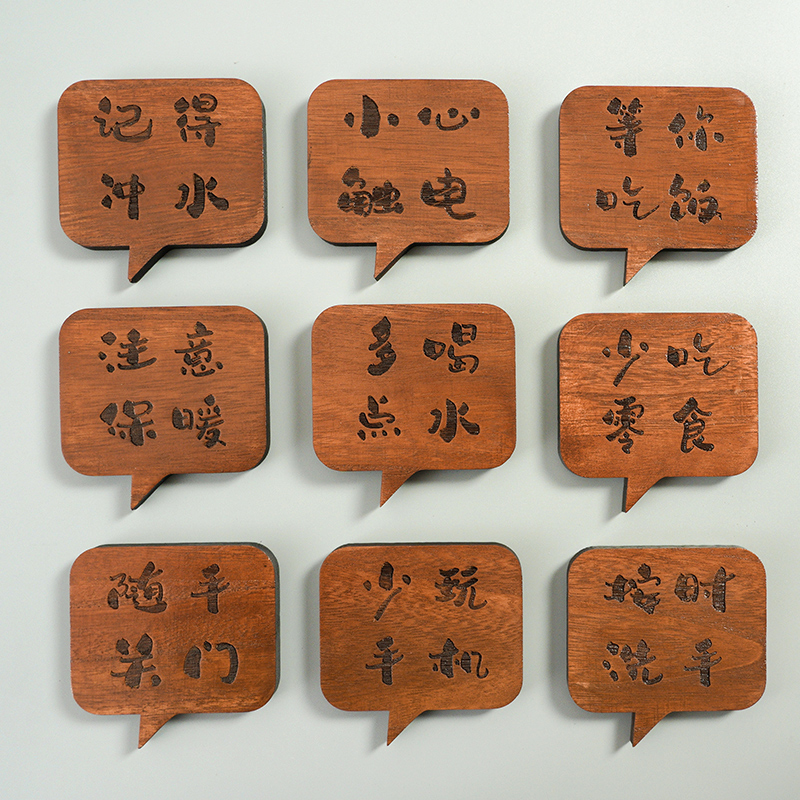 记得
冲水
小心
触电
等你
吃饭
注意
保暖
多喝
点水
少吃
零食
随手
关门
少玩
手机
按时
洗手